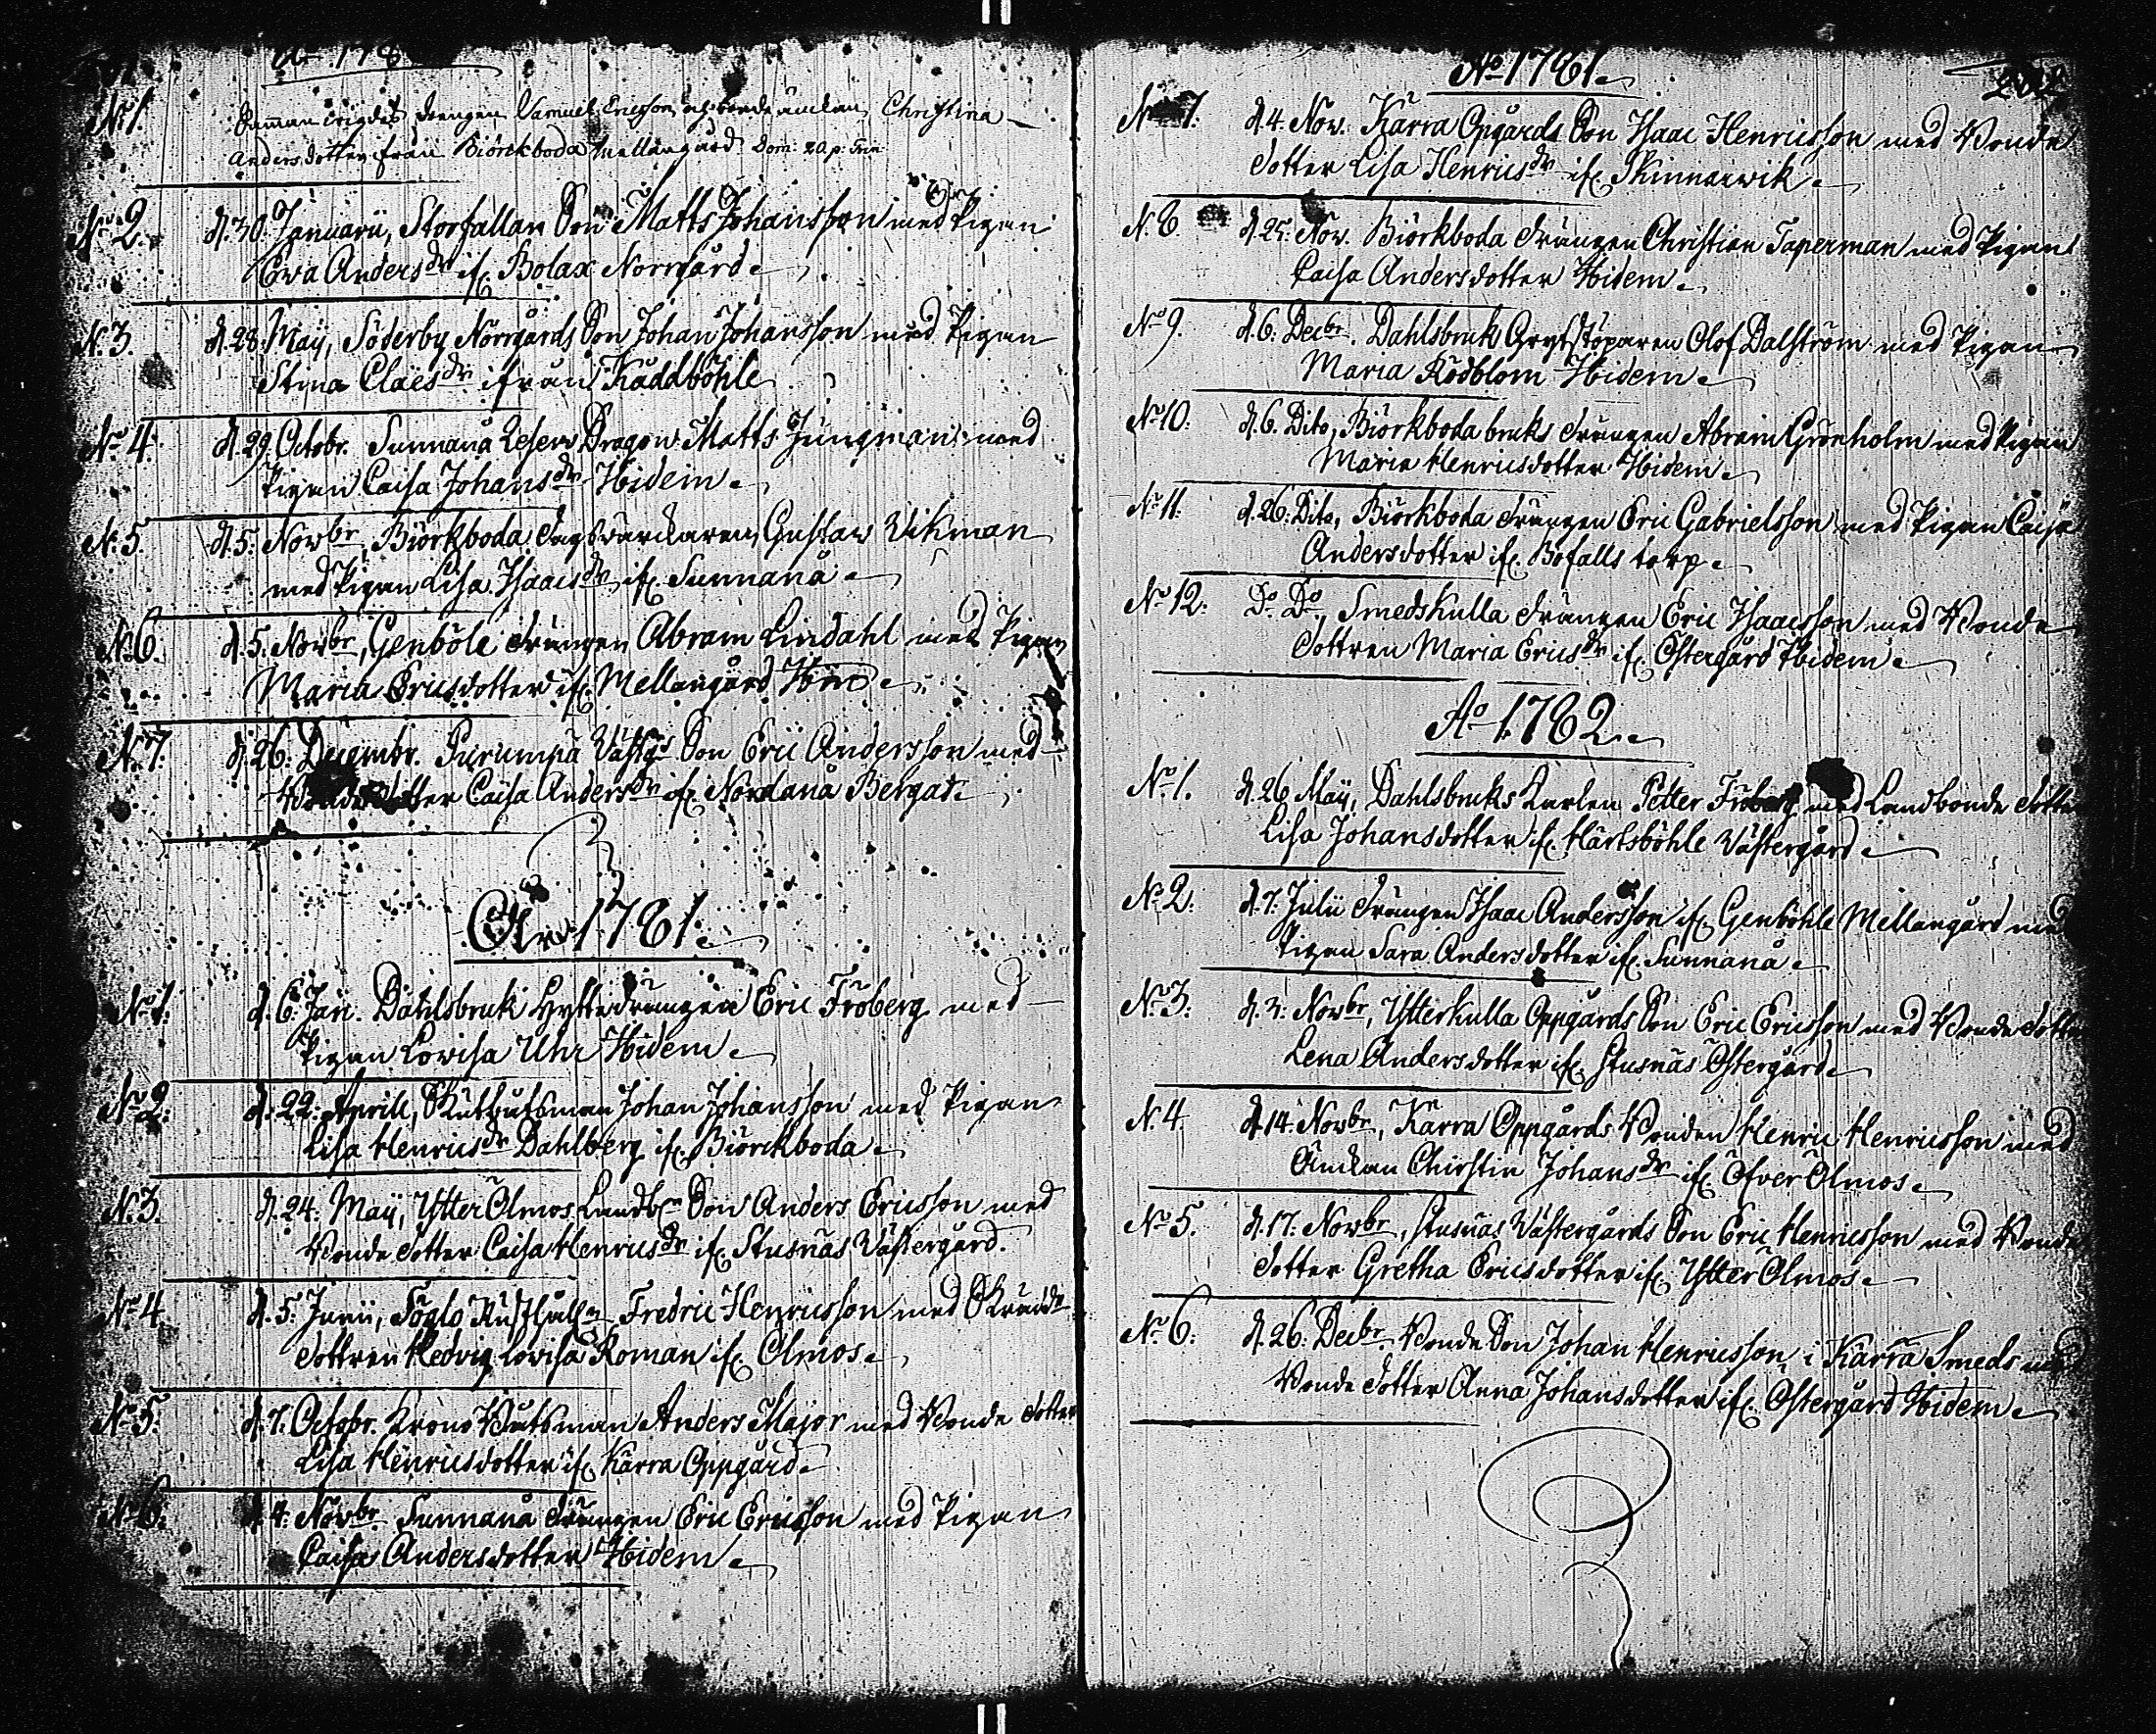 Ao 178
No 1. Samman vigdes drengen Samuel Ericsson och bonde änckan Christina
Andersdotter från Biörckboda Mellangård Dom: 20 p: Trin:
No 2. d. 30. Januarii, Storfallan Son Matts Johansson med Pigan
Ewa Andersdr if. Bolax Norrgård.
N. 3. d. 28. Maÿ, Söderby Norrgårds Son Johan Johansson med Pigan
Stina Claësdr ifrån Kaddböhle
No 4. d. 29. Octobr. Sunnanå Reserv Dragon Matts Jungman med
Pigan Caisa Johansdr Ibidem.
N. 5. d. 5. Novbr, Biörkboda Dagsvärckaren Gustaw Wikman
med Pigan Lisa Isaacsdr if. Sunnanå.
No 6. d. 5. Novbr, Genböle drängen Abram Lindahl med Pigan
Maria Ericsdotter if. Mellangård
N. 7. d. 26. Decembr. Purunpä Västgs Son Eric Andersson med
Bonde dotter Caisa Andersdr if. Nordanå Bergat.
Åhr 1781.
No 1. d. 6. Jan. Dahlsbruk Hyttedrängen Eric Fröberg med
Pigan Lovisa Uhr Ibidem.
No 2. d. 22. Aprill, Skutbåtsman Johan Johansson med Pigan
Lisa Henricsdr Dahlberg if. Biörckboda.
N. 3. d. 24. Maÿ, Ytter Ölmos Landbn Son Anders Ericsson med
Bonde dotter Caisa Henricsdr if. Stusnäs Västergård.
No 4. d. 5. Junii, Föglö Fredric Henricsson med
dottren Hedvig Lovisa Roman if. Ölmos.
No 5. d. 7. Octobr. Krono Båtsman Anders Major med Bonde dotter
Lisa Henricsdotter if. Kärra Oppgård.
No 6. d. 4. Novbr. Sunnanå drängen Eric Ericsson med Pigan
Caisa Andersdotter Ibidem.
Ao 1781.
No 7. d. 4. Nov. Kärra Opgårds Son Isaac Henricsson med Bonde
dotter Lisa Henricsdr if. Skinnarwik.
N. 8. d. 25. Nov. Biörkboda drängen Christian Taperman med Pigan
Caisa Andersdotter Ibidem.
No 9. d. 6. Decbr. Dahlsbruk Grytstöparen Olof Dalström med Pigan
Maria Rödblom Ibidem.
No 10. d. 6. Dito, Biörkboda bruks drängen Abram Grönholm med Pigan
Maria Henricsdotter Ibidem.
No 11. d. 26. Dito, Biörkboda drängen Eric Gabrielsson med Pigan Caisa
Andersdotter if. Bofalls torp.
No 12. Do Do, Smedskulla drängen Eric Isaacsson med Bonde
dottren Maria Ericsdr if. Östergård Ibidem.
Ao 1782.
No 1. d. 26 Maÿ, Dahlsbruks Karlen Petter Fröberg med Landbonde dotter
Lisa Johansdotter if. Härtsböhle Västergård.
No 2. d. 7. Julii drängen Isaac Andersson if. Genböhle Mellangård med
Pigan Sara Andersdotter if. Sunnanå.
No 3. d. 3. Novbr, Ytterkulla Oppgårds Son Eric Ericsson med Bonde dotter
Lena Andersdotter if. Stusnäs Östergård.
N. 4. d. 14. Novbr, Kärra Oppgårds Bonden Henric Henricsson med
Änckan Chirstin Johansdr if. Öfver Ölmos.
No 5. d. 17. Novbr, Stusnäs Västergårds Son Eric Henricsson med Bonde
dotter Gretha Ericsdotter if. Ytter Ölmos.
No 6. d. 26. Decbr. Bonde Son Johan Henricsson i Kärra Smeds med
Bonde dotter Anna Johansdotter if. Östergård Ibidem.